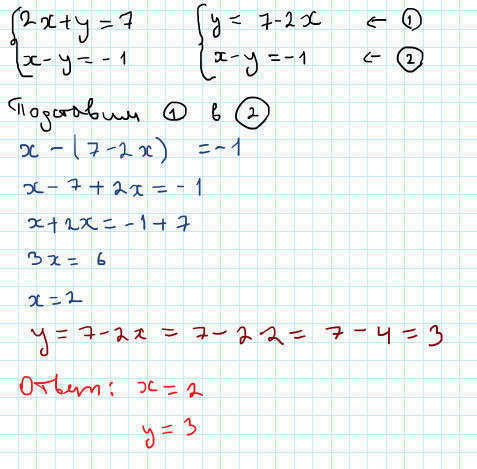 {2x+y=7 {y= 7-2x ← ①
{x-y=-1 {x-y=-1 ← ②
Подставим ① в ②
x-(7-2x) =-1
x-7+2x=-1
x+2x=-1+7
3x= 6
x=2
y=7-2x=7-2·2=7-4=3
Ответ: x=2
y=3